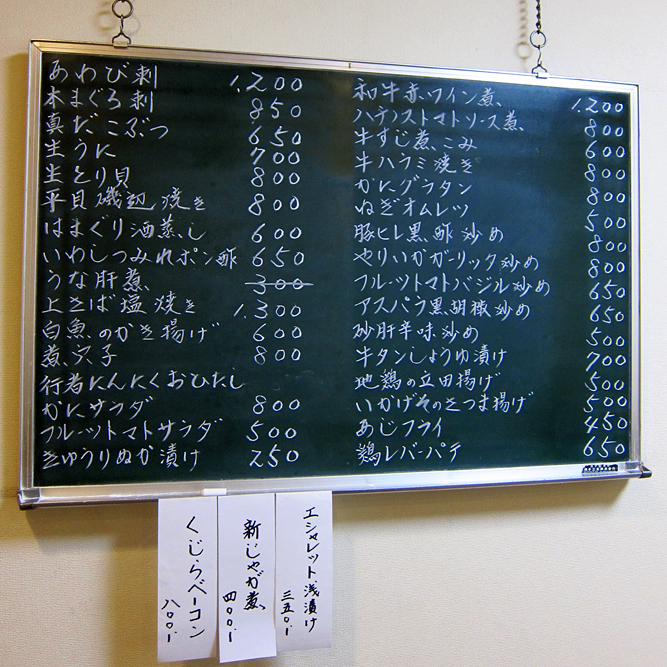 あわび刺 1,200
本まぐろ刺 850
真だこぶつ 650
生うに 700
生とり貝 800
平貝磯辺焼き 800
はまぐり酒蒸し 600
いわしつみれポン酢 650
うな肝煮 300
上さば塩焼き 1,300
白魚のかき揚げ 600
煮穴子 800
行者にんにくおひたし
かにサラダ 800
フルーツトマトサラダ 500
きゅうりぬか漬け 250
和牛赤ワイン煮 1,200
ハチノストマトソース煮 800
牛すじ煮こみ 600
牛ハラミ焼き 800
かにグラタン 800
ねぎオムレツ 500
豚ヒレ黒酢炒め 800
やりいかガーリック炒め 800
フルーツトマトバジル炒め 650
アスパラ黒胡椒炒め 650
砂肝辛味炒め 500
牛タンしょうゆ漬け 700
地鶏の立田揚げ 500
いかげそのさつま揚げ 500
あじフライ 450
鶏レバーパテ 650
エシャレット浅漬け
三五〇
新じゃが煮
四〇〇
くじらベーコン
八〇〇